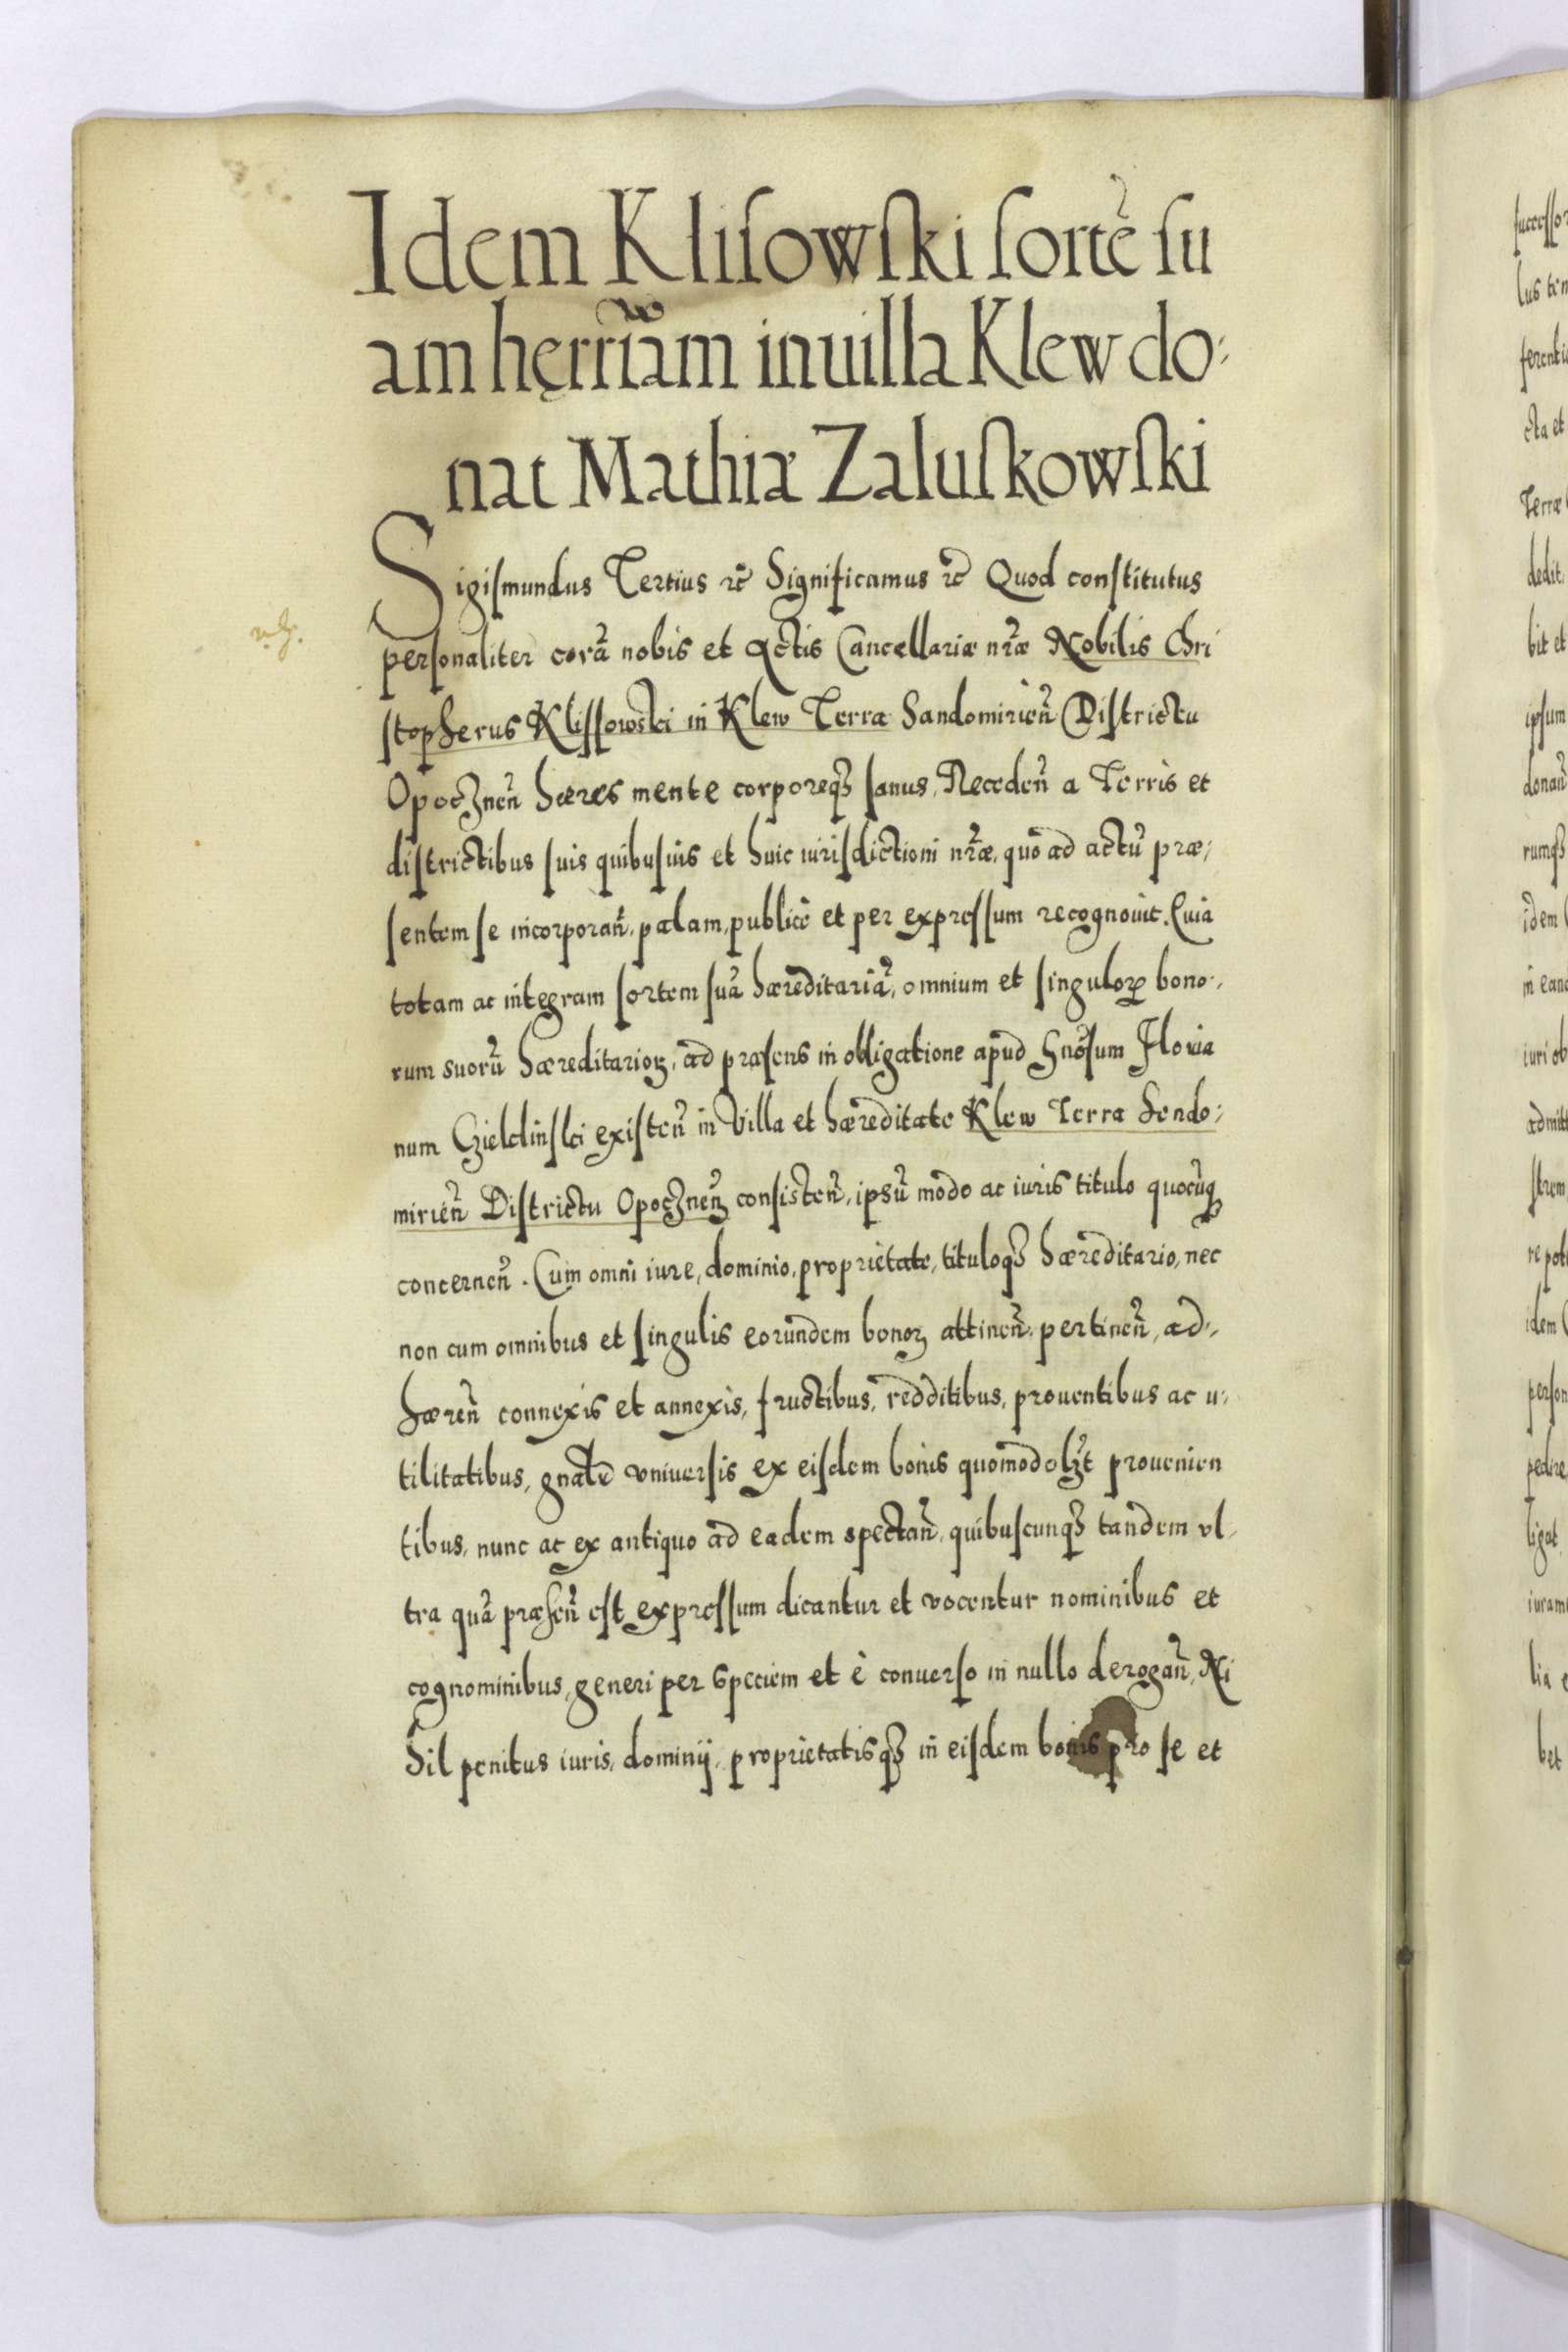 Idem Kliſowſki ſortẽ ſu
am hęrr̃iam in uilla Klew do:
nat Mathiæ Zaluſkowſki
Sigiſmundus Tertius ꝛc̃ Significamus ꝛc̃ Quod conſtitutus
perſonaliter corã nobis et Actis Cancellariæ nr̃æ Nobilis Chri
ſtopherus Kliſſowski in Klew Terræ Sandomirien̄ Diſtrictu
Opoczneñ hæres mente corporeqȝ ſanus, Recedeñ a Terris et
diſtrictibus ſuis quibuſuis et huic iuriſdictioni nr̃æ, quo ad actũ præ:
ſentem ſe incorporañ, palam, publicè et per expreſſum recognouit. Quia
totam ac integram ſortem ſuã hæreditariã, omnium et ſinguloꝝ bono:
rum suorũ hæreditarioꝝ, ad præſens in obligatione apud Gnõſum Floria
num Czieklinſki exiſteñ in Villa et hæreditate Klew Terra Sendo:
mirieñ Diſtrictu Opoczneñ conſisteñ, ipsũ modo ac iuris titulo quocũqꝫ
concerneñ. Cum omni iure, dominio, proprietate, tituloqȝ hæreditario, nec
non cum omnibus et ſingulis eorundem bonoꝝ attineñ, pertineñ, ad:
hæreñ connexis et annexis, fructibus, redditibus, prouentibus ac u:
tilitatibus, gnãlr̃ vniuerſis ex eiſdem bonis quomodolȝt prouenien
tibus, nunc ac ex antiquo ad eadem spectañ, quibuſcunqȝ tandem vl:
tra quã præſeñ eſt expreſſum dicantur et vocentur nominibus et
cognominibus, generi per speciem et è conuerſo in nullo derogañ, Ni
hil penitus iuris, dominij, proprietatisqȝ in eiſdem bonis pro ſe et